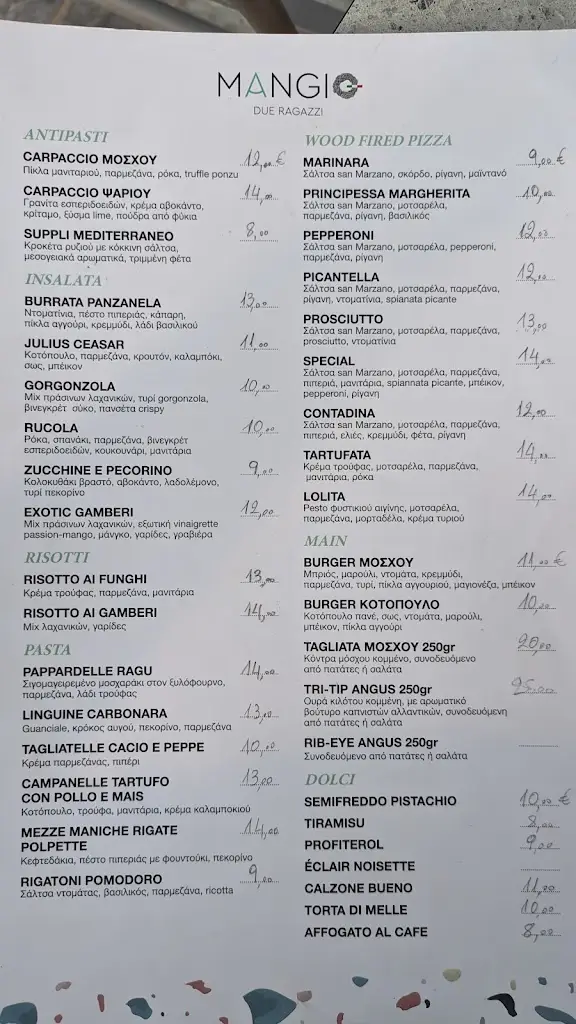 MANGIO
DUE RAGAZZI
ANTIPASTI
CARPACCIO ΜΟΣΧΟΥ 12,00 €
Πίκλα μανιταριού, παρμεζάνα, ρόκα, truffle ponzu
CARPACCIO ΨΑΡΙΟΥ 14,00
Γρανίτα εσπεριδοειδών, κρέμα αβοκάντο,
κρίταμο, ξύσμα lime, πούδρα από φύκια
SUPPLI MEDITERRANEO 8,00
Κροκέτα ρυζιού με κόκκινη σάλτσα,
μεσογειακά αρωματικά, τριμμένη φέτα
INSALATA
BURRATA PANZANELA 13,00
Ντοματίνια, πέστο πιπεριάς, κάπαρη,
πίκλα αγγούρι, κρεμμύδι, λάδι βασιλικού
JULIUS CEASAR 11,00
Κοτόπουλο, παρμεζάνα, κρουτόν, καλαμπόκι,
σως, μπέικον
GORGONZOLA 10,00
Mix πράσινων λαχανικών, τυρί gorgonzola,
βινεγκρέτ σύκο, πανσέτα crispy
RUCOLA 10,00
Ρόκα, σπανάκι, παρμεζάνα, βινεγκρέτ
εσπεριδοειδών, κουκουνάρι, μανιτάρια
ZUCCHINE E PECORINO 9,00
Κολοκυθάκι βραστό, αβοκάντο, λαδολέμονο,
τυρί πεκορίνο
EXOTIC GAMBERI 12,00
Mix πράσινων λαχανικών, εξωτική vinaigrette
passion-mango, μάνγκο, γαρίδες, γραβιέρα
RISOTTI
RISOTTO AI FUNGHI 13,00
Κρέμα τρούφας, παρμεζάνα, μανιτάρια
RISOTTO AI GAMBERI 14,00
Mix λαχανικών, γαρίδες
PASTA
PAPPARDELLE RAGU 14,00
Σιγομαγειρεμένο μοσχαράκι στον ξυλόφουρνο,
παρμεζάνα, λάδι τρούφας
LINGUINE CARBONARA 13,00
Guanciale, κρόκος αυγού, πεκορίνο, παρμεζάνα
TAGLIATELLE CACIO E PEPPE 10,00
Κρέμα παρμεζάνας, πιπέρι
CAMPANELLE TARTUFO 13,00
CON POLLO E MAIS
Κοτόπουλο, τρούφα, μανιτάρια, κρέμα καλαμποκιού
MEZZE MANICHE RIGATE 14,00
POLPETTE
Κεφτεδάκια, πέστο πιπεριάς με φουντούκι, πεκορίνο
RIGATONI POMODORO 9,00
Σάλτσα ντομάτας, βασιλικός, παρμεζάνα, ricotta
WOOD FIRED PIZZA
MARINARA 9,00 €
Σάλτσα san Marzano, σκόρδο, ρίγανη, μαϊντανό
PRINCIPESSA MARGHERITA 10,00
Σάλτσα san Marzano, μοτσαρέλα,
παρμεζάνα, ρίγανη, βασιλικός
PEPPERONI 12,00
Σάλτσα san Marzano, μοτσαρέλα, pepperoni,
παρμεζάνα, ρίγανη
PICANTELLA 12,00
Σάλτσα san Marzano, μοτσαρέλα, παρμεζάνα,
ρίγανη, ντοματίνια, spianata picante
PROSCIUTTO 13,00
Σάλτσα san Marzano, μοτσαρέλα, παρμεζάνα,
prosciutto, ντοματίνια
SPECIAL 14,00
Σάλτσα san Marzano, μοτσαρέλα, παρμεζάνα,
πιπεριά, μανιτάρια, spiannata picante, μπέικον,
pepperoni, ρίγανη
CONTADINA 12,00
Σάλτσα san Marzano, μοτσαρέλα, παρμεζάνα,
πιπεριά, ελιές, κρεμμύδι, φέτα, ρίγανη
TARTUFATA 14,00
Κρέμα τρούφας, μοτσαρέλα, παρμεζάνα,
μανιτάρια, ρόκα
LOLITA 14,00
Pesto φυστικιού αιγίνης, μοτσαρέλα,
παρμεζάνα, μορταδέλα, κρέμα τυριού
MAIN
BURGER ΜΟΣΧΟΥ 11,00 €
Μπριός, μαρούλι, ντομάτα, κρεμμύδι,
παρμεζάνα, τυρί, πίκλα αγγουριού, μαγιονέζα, μπέικον
BURGER ΚΟΤΟΠΟΥΛΟ 10,00
Κοτόπουλο πανέ, σως, ντομάτα, μαρούλι,
μπέικον, πίκλα αγγούρι
TAGLIATA ΜΟΣΧΟΥ 250gr 20,00
Κόντρα μόσχου κομμένο, συνοδευόμενο
από πατάτες ή σαλάτα
TRI-TIP ANGUS 250gr 25,00
Ουρά κιλότου κομμένη, με αρωματικό
βούτυρο καπνιστών αλλαντικών, συνοδευόμενη
από πατάτες ή σαλάτα
RIB-EYE ANGUS 250gr
Συνοδευόμενο από πατάτες ή σαλάτα
DOLCI
SEMIFREDDO PISTACHIO 10,00 €
TIRAMISU 8,00
PROFITEROL 9,00
ÉCLAIR NOISETTE
CALZONE BUENO 11,00
TORTA DI MELLE 10,00
AFFOGATO AL CAFE 8,00